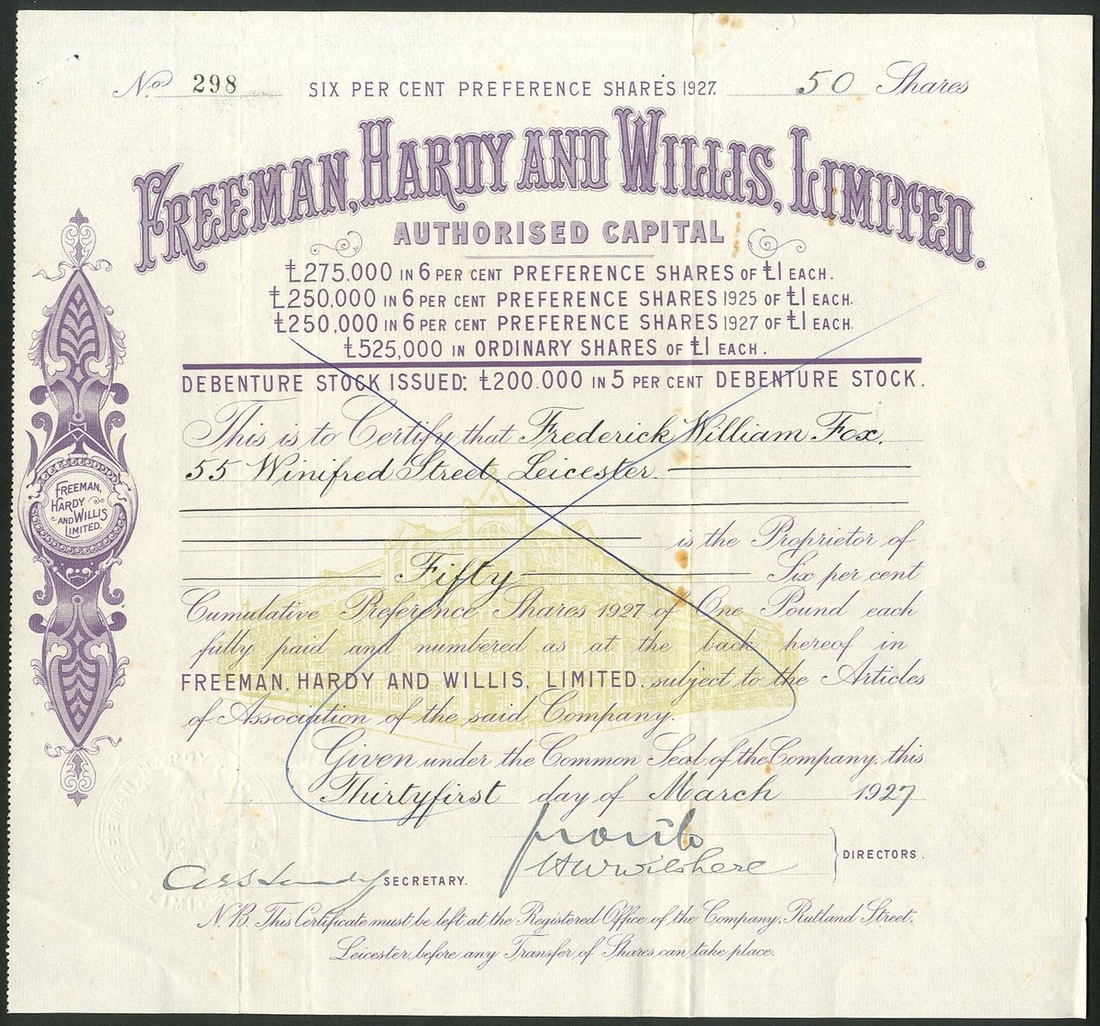 No 298 SIX PER CENT PREFERENCE SHARES 1927. 50 Shares
FREEMAN, HARDY AND WILLIS, LIMITED.
AUTHORISED CAPITAL
£275.000 IN 6 PER CENT PREFERENCE SHARES OF £1 EACH.
£250,000 IN 6 PER CENT PREFERENCE SHARES 1925 OF £1 EACH.
£250,000 IN 6 PER CENT PREFERENCE SHARES 1927 OF £1 EACH.
£525,000 IN ORDINARY SHARES OF £1 EACH.
DEBENTURE STOCK ISSUED: £200.000 IN 5 PER CENT DEBENTURE STOCK.
This is to Certify that Frederick William Fox.
55 Winifred Street, Leicester.
FREEMAN,
HARDY
AND WILLIS
LIMITED.
is the Proprietor of
Fifty Six per cent
Cumulative Preference Shares 1927 of One Pound each
fully paid and numbered as at the back hereof in
FREEMAN, HARDY AND WILLIS, LIMITED. subject to the Articles
of Association of the said Company.
Given under the Common Seal of the Company, this
Thirtyfirst day of March 1927
DIRECTORS.
SECRETARY.
N.B. This Certificate must be left at the Registered Office of the Company, Rutland Street,
Leicester, before any Transfer of Shares can take place.